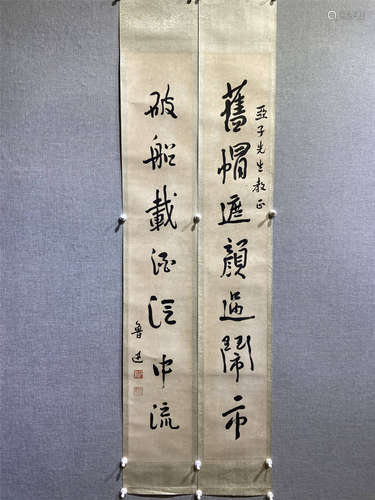 亞子先生教正
舊帽遮顏過鬧市
破船載酒泛中流
魯迅